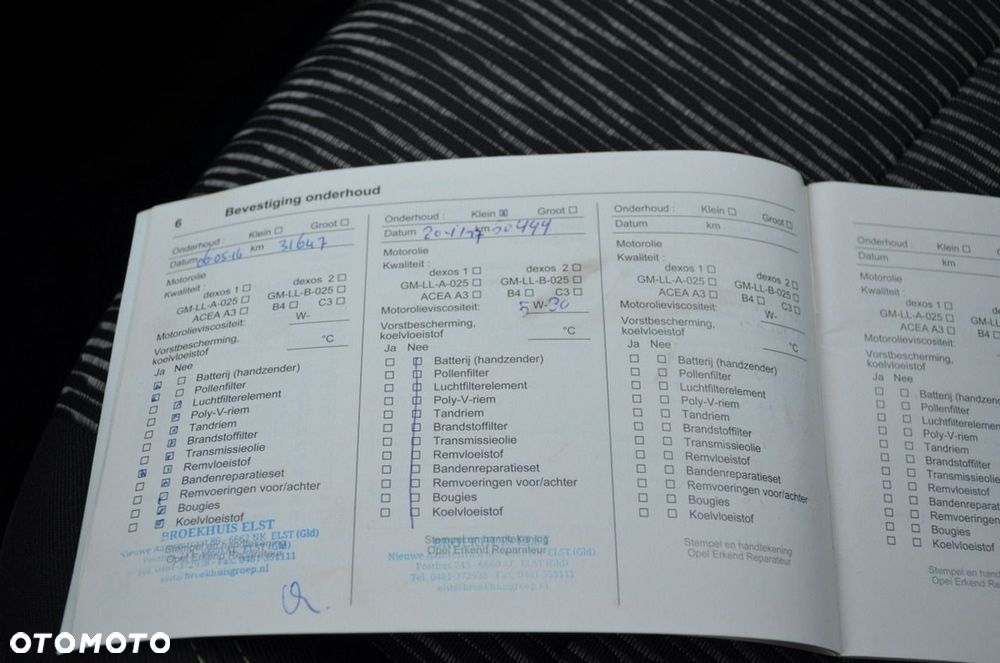 6 Bevestiging onderhoud
Onderhoud : Klein Groot
Datum 06-05-16 km 31647
Motorolie
Kwaliteit :
dexos 1 dexos 2
GM-LL-A-025 GM-LL-B-025
ACEA A3 B4 C3
Motorolieviscositeit: W-
Vorstbescherming,
koelvloeistof °C
Ja Nee
Batterij (handzender)
Pollenfilter
Luchtfilterelement
Poly-V-riem
Tandriem
Brandstoffilter
Transmissieolie
Remvloeistof
Bandenreparatieset
Remvoeringen voor/achter
Bougies
Koelvloeistof
BROEKHUIS ELST
Stempel en handtekening
Opel Erkend Reparateur
Onderhoud : Klein Groot
Datum 20-1-17 km 50444
Motorolie
Kwaliteit :
dexos 1 dexos 2
GM-LL-A-025 GM-LL-B-025
ACEA A3 B4 C3
Motorolieviscositeit: 5 W-30
Vorstbescherming,
koelvloeistof °C
Ja Nee
Batterij (handzender)
Pollenfilter
Luchtfilterelement
Poly-V-riem
Tandriem
Brandstoffilter
Transmissieolie
Remvloeistof
Bandenreparatieset
Remvoeringen voor/achter
Bougies
Koelvloeistof
Stempel en handtekening
Opel Erkend Reparateur
Nieuwe ELST (Gld)
Postbus 243 - 6660 AE ELST (Gld)
Tel. 0481-372938 - Fax: 0481-351111
elst@broekhuisgroep.nl
Onderhoud : Klein Groot
Datum km
Motorolie
Kwaliteit :
dexos 1 dexos 2
GM-LL-A-025 GM-LL-B-025
ACEA A3 B4 C3
Motorolieviscositeit: W-
Vorstbescherming,
koelvloeistof °C
Ja Nee
Batterij (handzender)
Pollenfilter
Luchtfilterelement
Poly-V-riem
Tandriem
Brandstoffilter
Transmissieolie
Remvloeistof
Bandenreparatieset
Remvoeringen voor/achter
Bougies
Koelvloeistof
Stempel en handtekening
Opel Erkend Reparateur
Onderhoud : Klein
Datum km
Motorolie
Kwaliteit :
dexos 1
GM-LL-A-025
ACEA A3
Motorolieviscositeit:
Vorstbescherming,
koelvloeistof
Ja Nee
Batterij (handzen
Pollenfilter
Luchtfilterelemen
Poly-V-riem
Tandriem
Brandstoffilter
Transmissieolie
Remvloeistof
Bandenreparatie
Remvoeringen
Bougies
Koelvloeistof
Stempel en
Opel Erkend
OTOMOTO